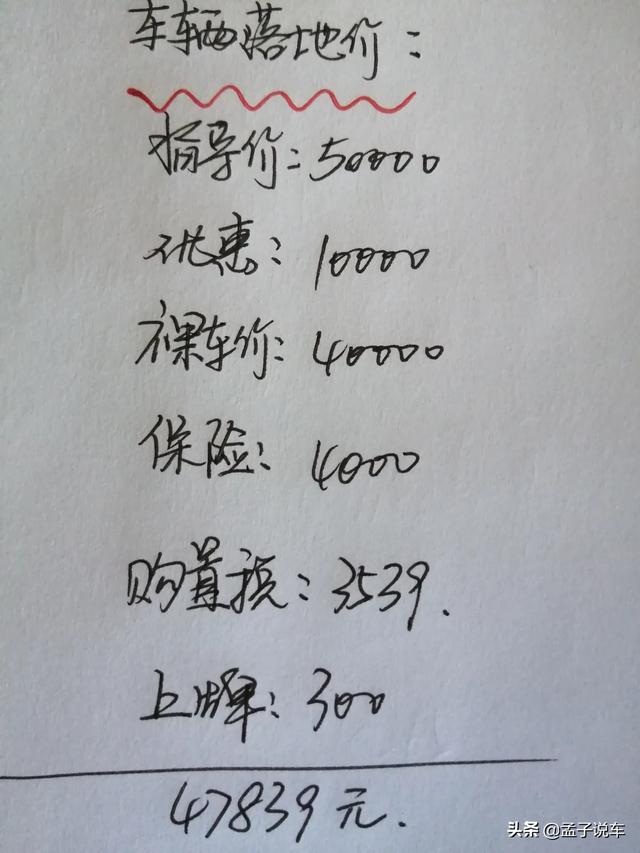 车辆落地价：
指导价：50000
优惠：10000
裸车价：40000
保险：4000
购置税：3539.
上牌：300
47839元.
头条 @孟子说车